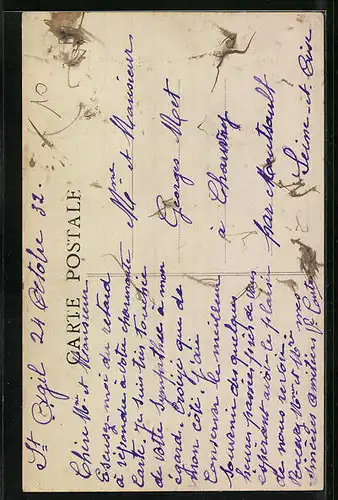 10
CARTE POSTALE
St Cyzil 21 Octobre 32.
Chère Mme et Monsieur
Excusez-moi du retard
à répondre à votre charmante
carte. Je suis très touchée
de votre sympathie à mon
égard. Croyez que de
mon côté j'ai
conservé le meilleur
souvenir des quelques
heures passées près de vous
espérant avoir le plaisir
de nous revoir.
Recevez Mme et Mr mes
sincères amitiés
Mme et Monsieur
Georges Met
à Chauvry
par Montsoult
Seine-et-Oise